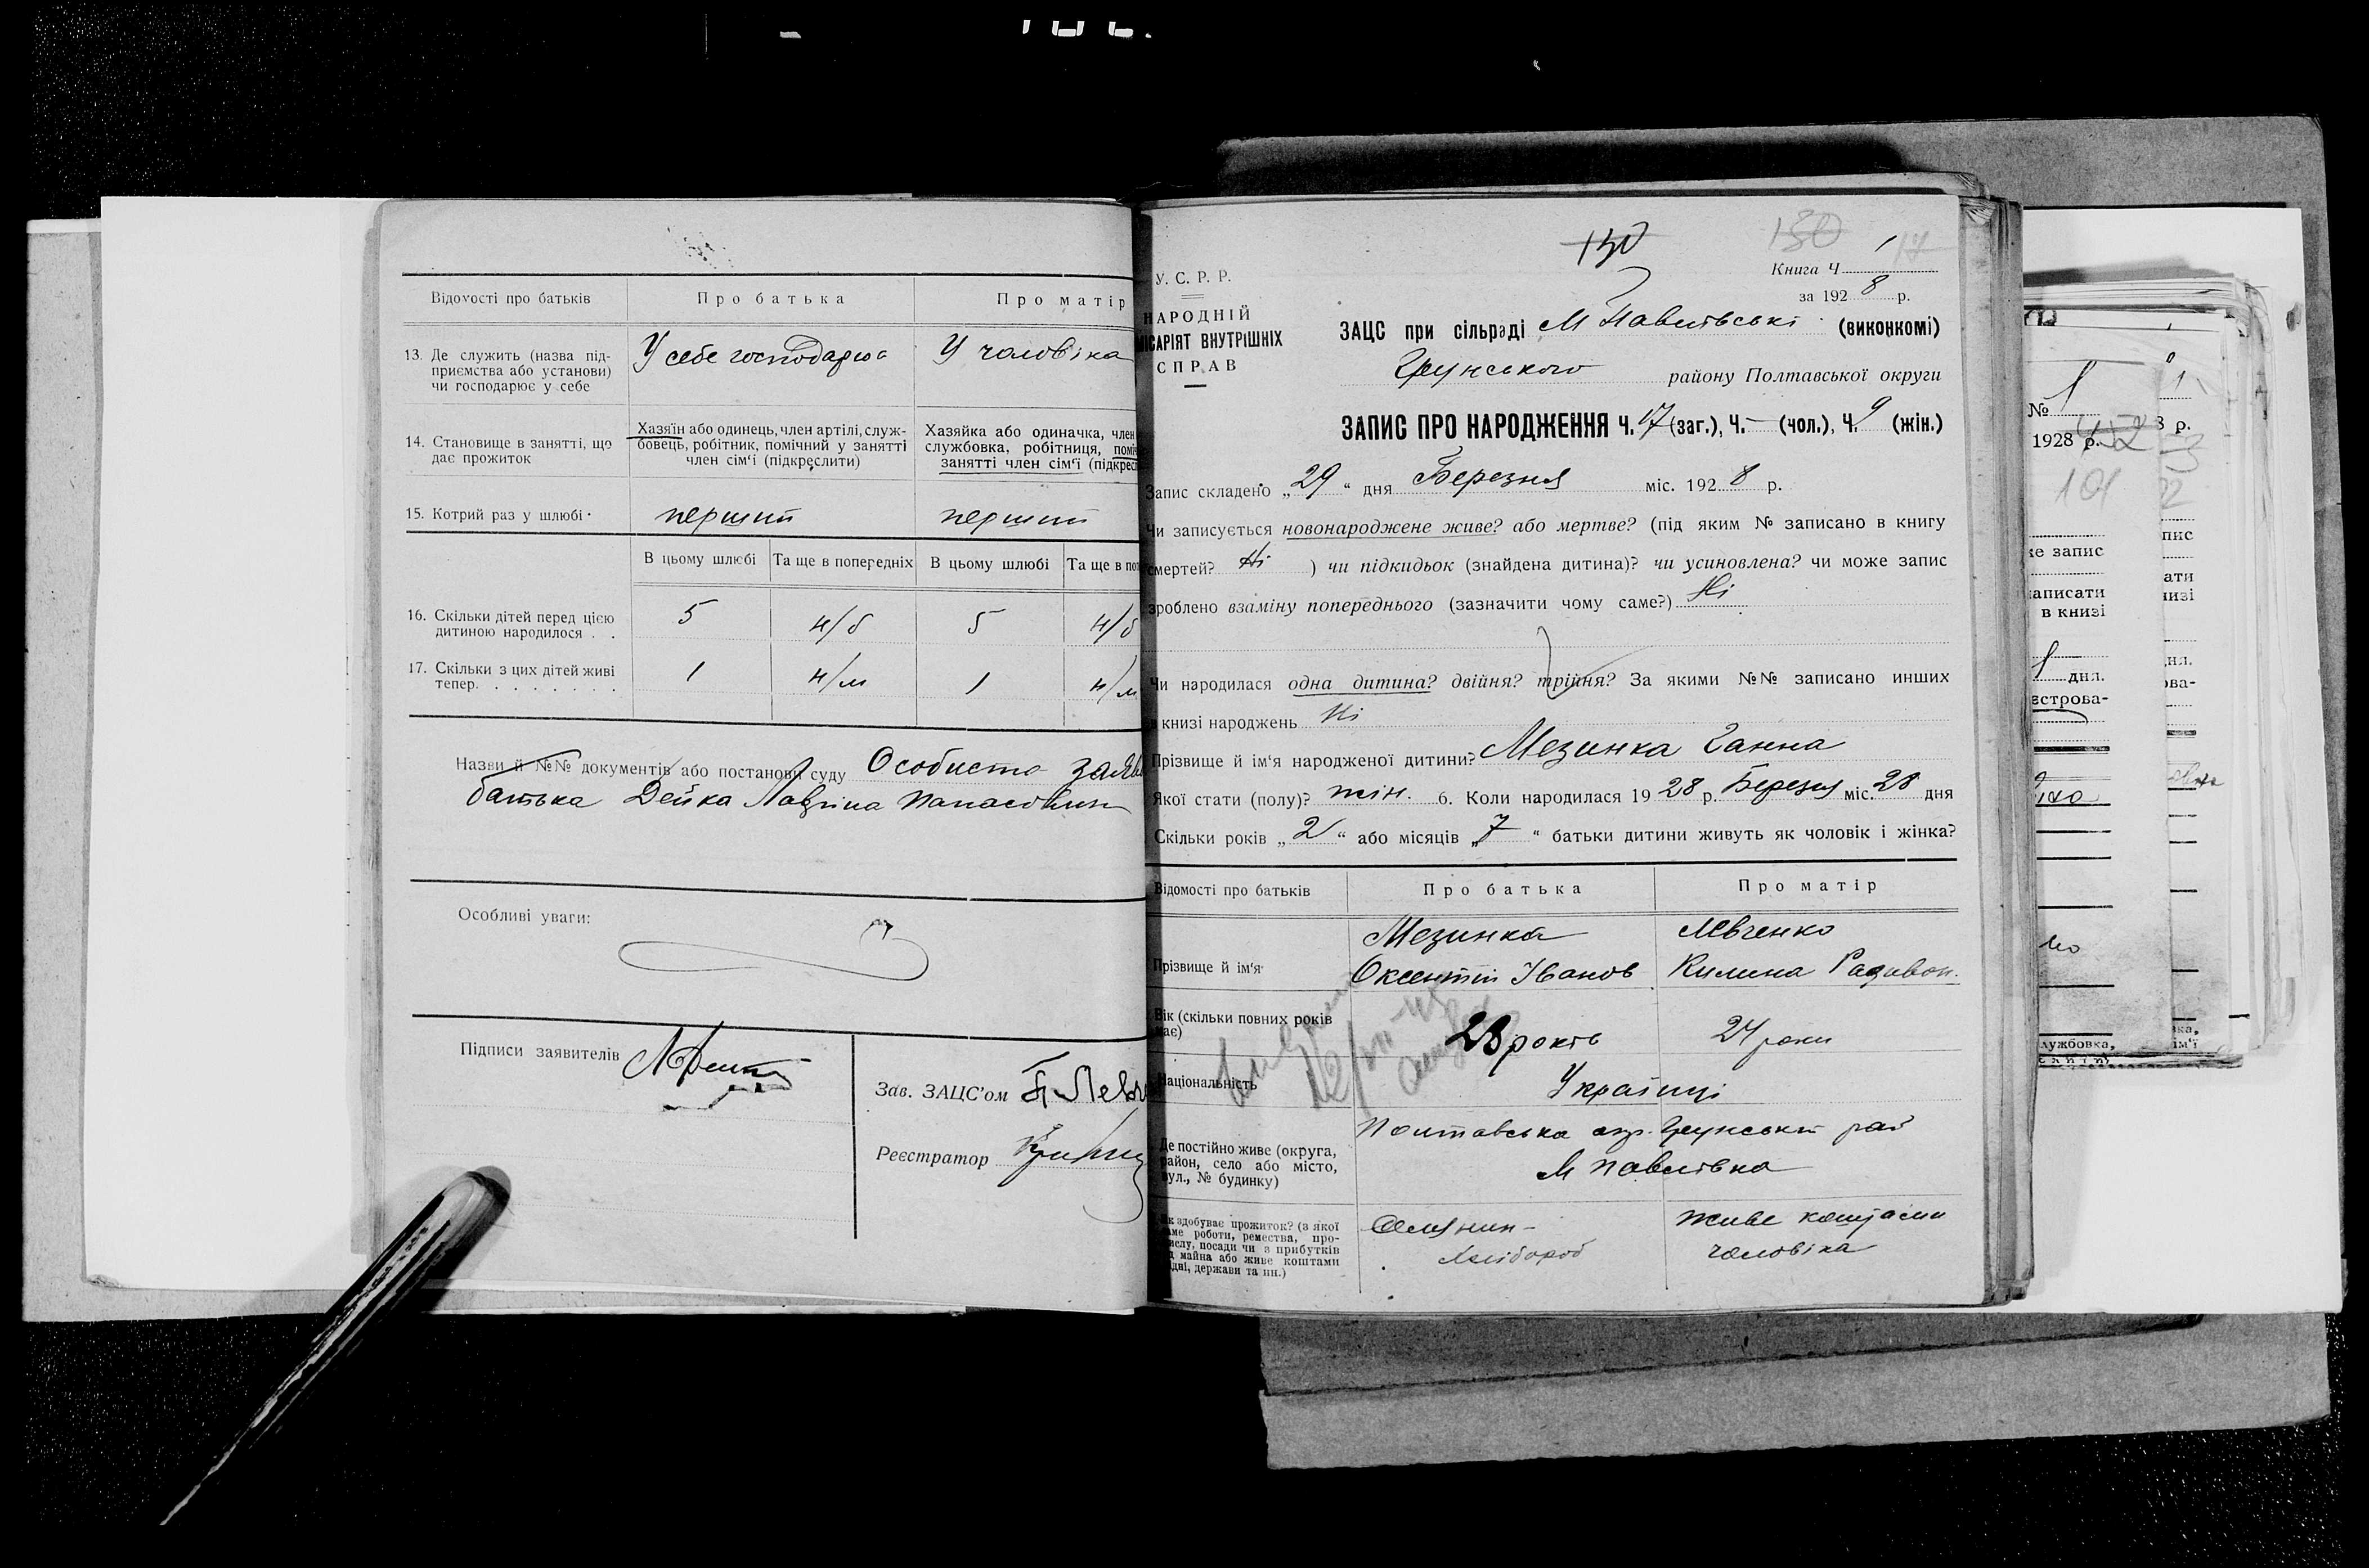 Відомості про батьків
Про батька
Про матір
13. Де служить (назва під-
приємства або установи)
чи господарює у себе
У себе господарює
У чоловіка
14. Становище в занятті, що
дає прожиток
Хазяїн або одинець, член артілі, служ-
бовець, робітник, помічний у занятті
член сім'ї (підкреслити)
Хазяйка або одиначка, член
службовка, робітниця,
занятті член сім'ї
15. Котрий раз у шлюбі
перший
перший
В цьому шлюбі
Та ще в попередніх
В цьому шлюбі
Та ще в
16. Скільки дітей перед цією
дитиною народилося . .
5
н/б
5
н/б
17. Скільки з цих дітей живі
тепер. . . . . . . .
1
н/м
1
н/м
Назви й №№ документів або постанови суду Особиста
батька Дейка Лавріна Панасовича
Особливі уваги:
Підписи заявителів
Зав. ЗАЦС'ом
Реєстратор
130
130
17
Книга Ч 1
за 1928 р.
У. С. Р. Р.
НАРОДНІЙ
ВНУТРІШНІХ
СПРАВ
ЗАЦС при сільраді М Павлівські (виконкомі)
Грунського району Полтавської округи
ЗАПИС ПРО НАРОДЖЕННЯ Ч. 17 (заг.), Ч. — (чол.), Ч. 9 (жін.)
Запис складено „29“ дня Березня міс. 1928 р.
Чи записується новонароджене живе? або мертве? (під яким № записано в книгу
смертей? Ні ) чи підкидьок (знайдена дитина)? чи усиновлена? чи може запис
зроблено взаміну попереднього (зазначити чому саме?) Ні
Чи народилася одна дитина? двійня? трійня? За якими №№ записано инших
в книзі народжень Ні
Прізвище й ім'я народженої дитини? Мезинка Ганна
Якої стати (полу)? жін. 6. Коли народилася 1928 р. Березня міс. 28 дня
Скільки років „2“ або місяців „7“ батьки дитини живуть як чоловік і жінка?
Відомості про батьків
Про батька
Про матір
Прізвище й ім'я
Мезинка
Оксентій Іванов
Левченко
Килина Радивон.
Вік (скільки повних років
має)
28 років
24 роки
Національність
Українці
Де постійно живе (округа,
район, село або місто,
вул., № будинку)
Полтавська окр. Грунський рай
М Павлівка
Як здобуває прожиток? (з якої
саме роботи, ремества, про-
мислу, посади чи з прибутків
від майна або живе коштами
рідні, держави та ин.)
Селянин -
хлібороб
Живе коштами
чоловіка
№ 1
1928 р.
101
запис
записати
в книзі
дня.